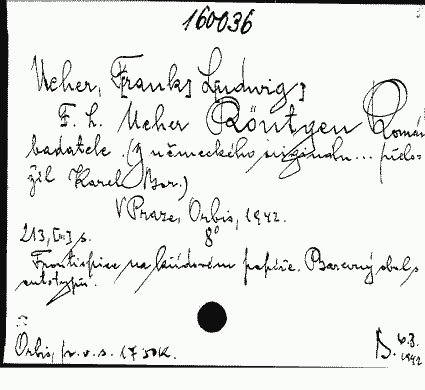 160036
Neher, Frank[ Ludwig]
F. L. Neher Röntgen Román
badatele. (Z německého originálu... přelo-
žil Karel Bor.)
V Praze, Orbis, 1942.
213, [III] s. 8°
Frontispice na křídovém papíře. Barevný obal s
autotypií.
Orbis, p.v.s. 1750K.
B. 6.3.
1942